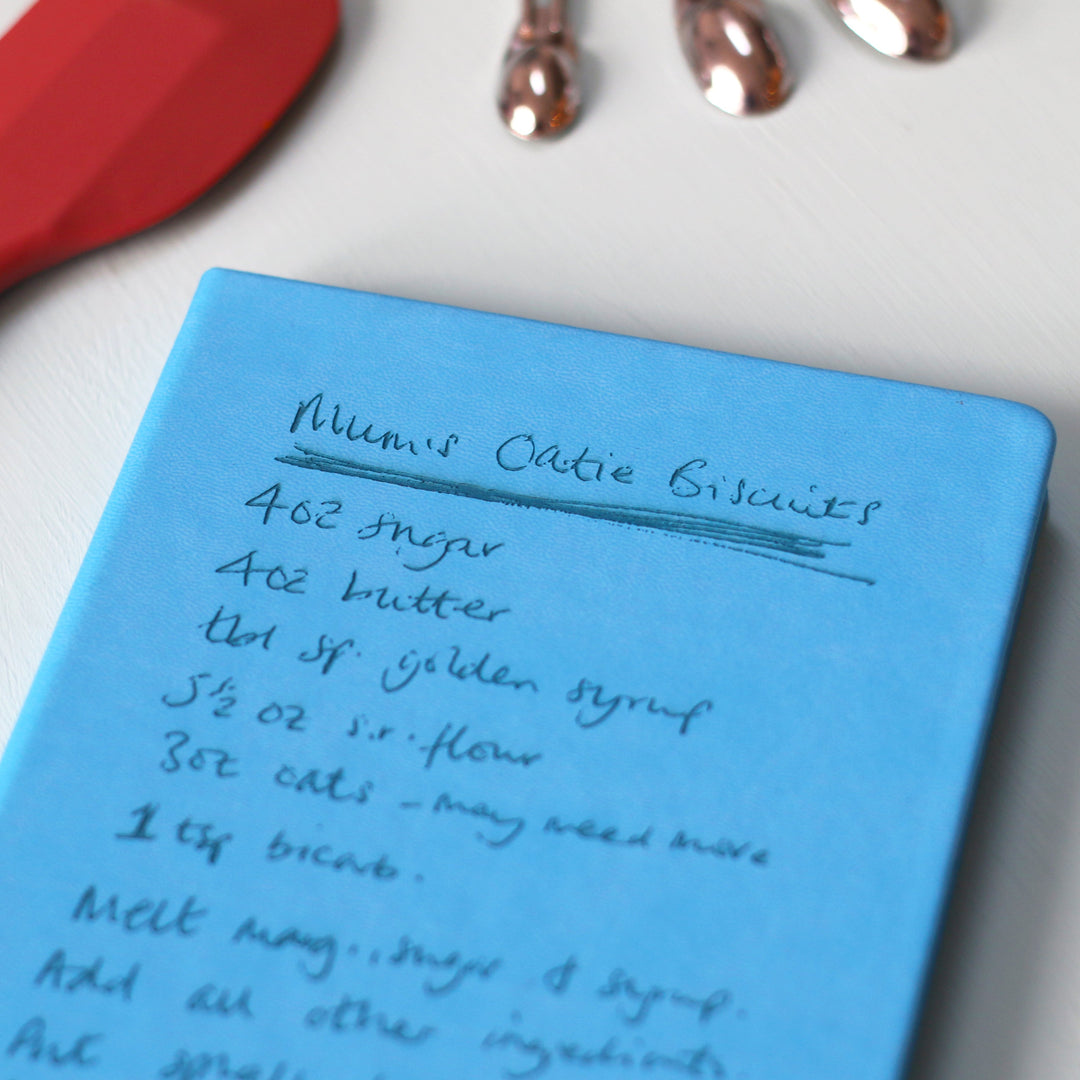 Mum's Oatie Biscuits
4oz sugar
4oz butter
tbl sp. golden syrup
5½ oz s.r. flour
3oz oats - may need more
1 tsp bicarb.
Melt marg., sugar & syrup.
Add all other ingredients.
Put small